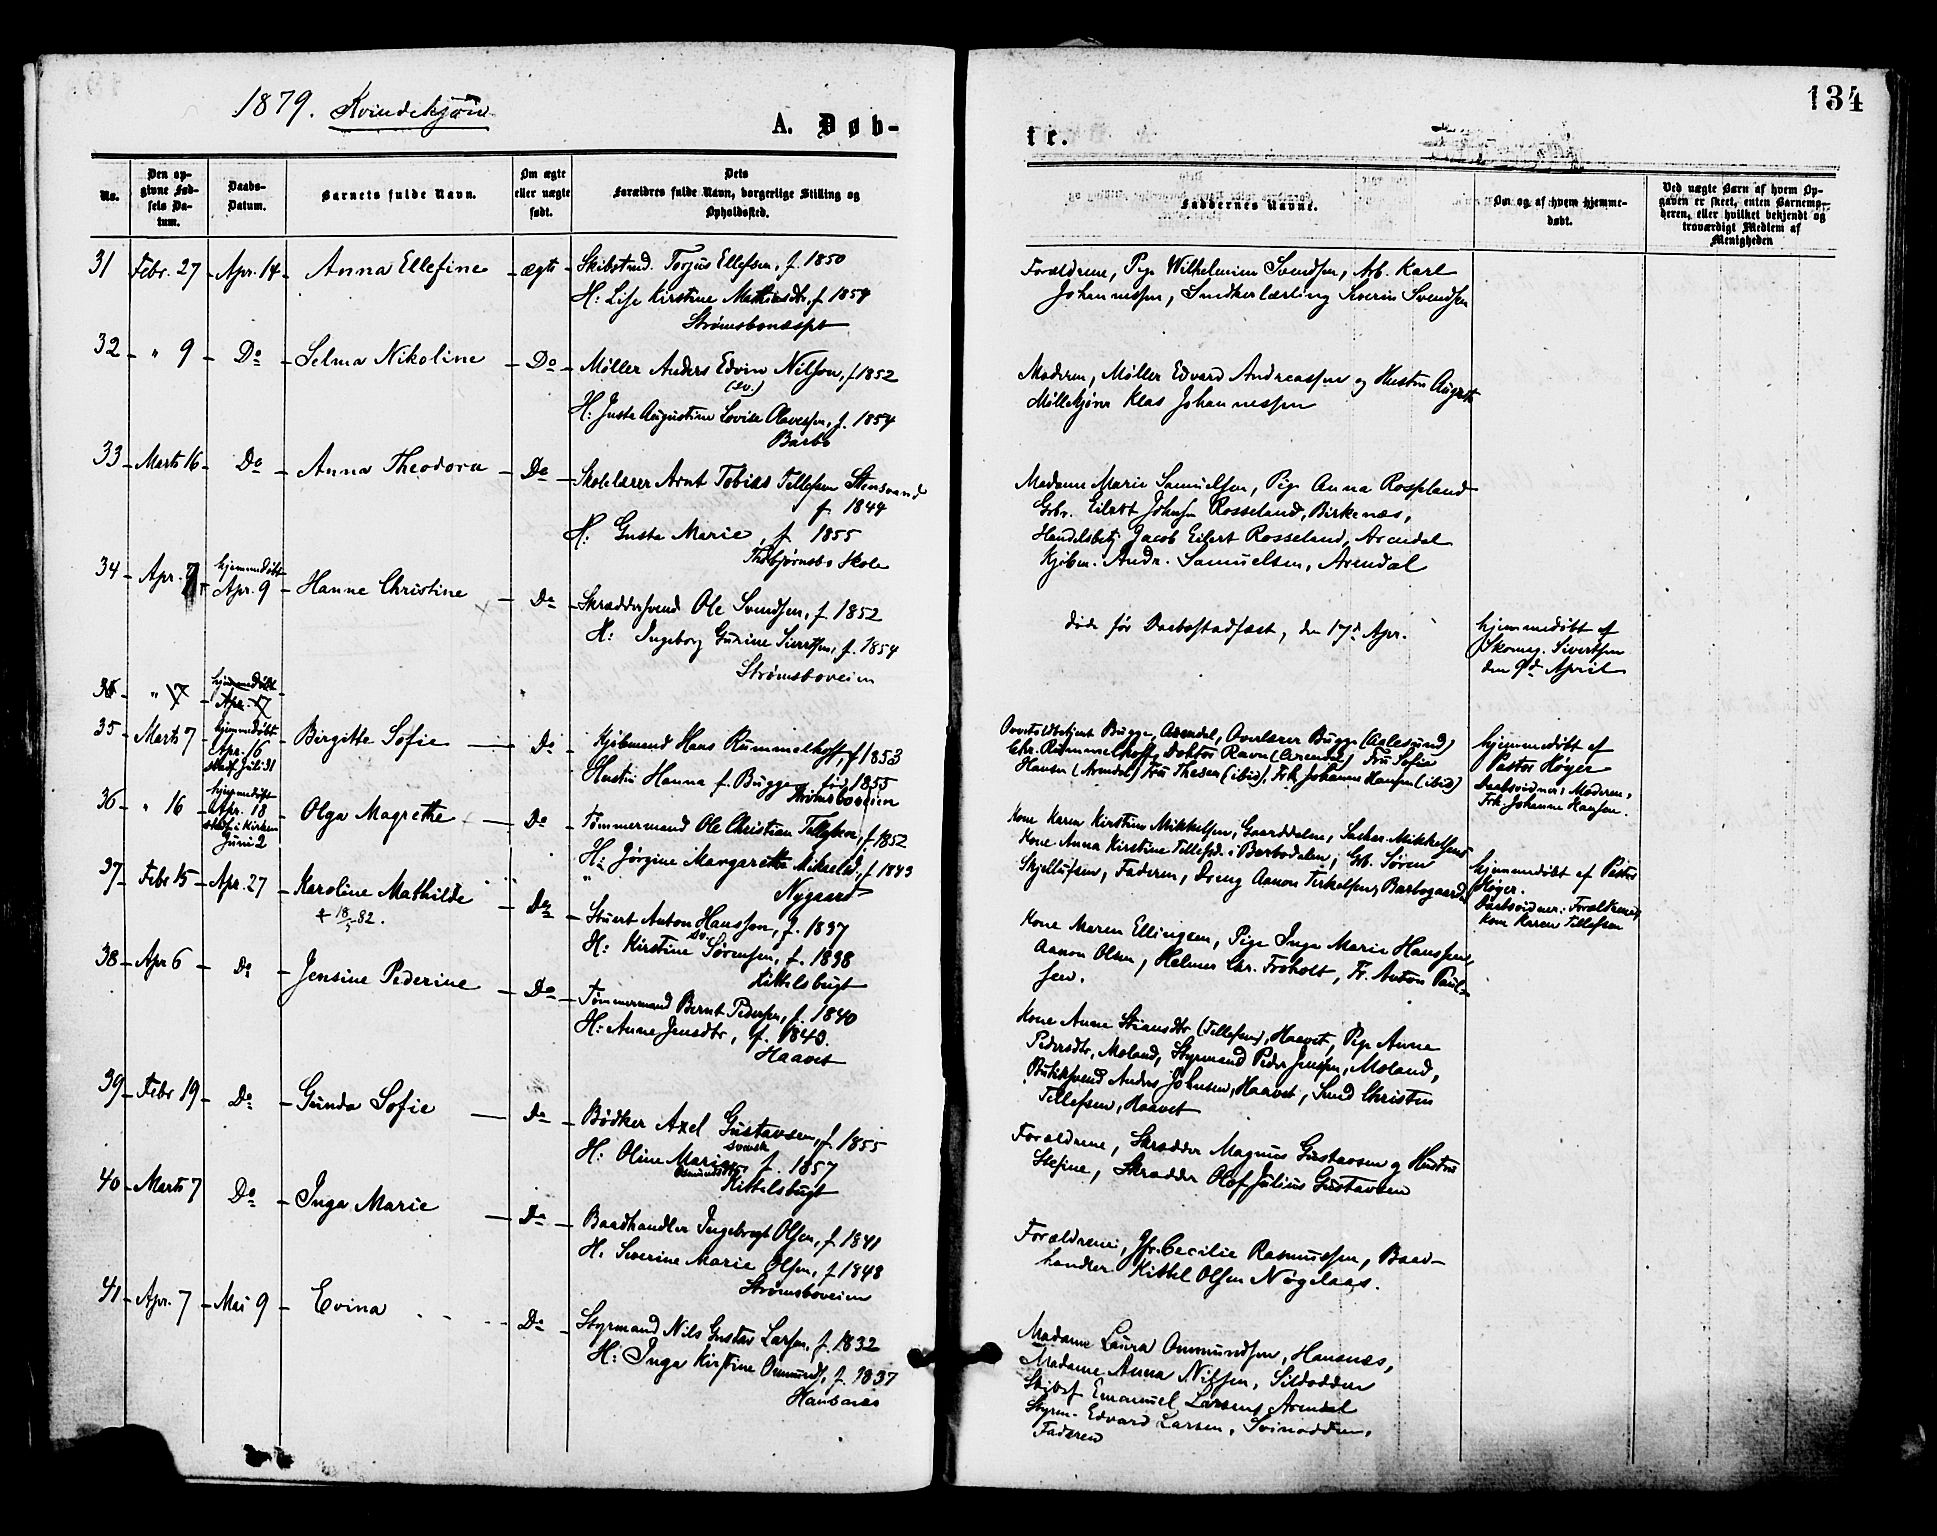 1879. Kvindekjøn
A. Døb-
te.
134
No.
Den op-
givne Fød-
sels Da-
tum.
Daabs-
Datum.
Barnets fulde Navn.
Om ægte
eller uægte
født.
Dets
Forældres fulde Navn, borgerlige Stilling og
Opholdssted.
Faddernes Navne.
Om og af hvem hjemme-
døbt.
Ved uægte Børn af hvem Op-
gaven er skeet, enten Barnemo-
deren, eller hvilket bekjendt og
troværdigt Medlem af
Menigheden
31 Febr. 27 Apr. 14 Anna Ellefine ægte Skibstmd. Torjus Ellefsen, f. 1850
H: Lise Kirstine f. 1854
Forældrene, Pige Wilhelmine Svendsen, Arb. Karl
Johannessen, Snedkerlærling Severin Svendsen
32 " 9 Do Selma Nikoline Do Møller Anders Edvin Nilson, f. 1852
(sv.)
H: Juste Augustine Lovise Olavesen, f. 1854
Barbo
Moderen, Møller Edvard Andreassen og Hustru Auguste
Møllekjører Klas Johannessen
33 Marts 16 Do Anna Theodora Do Skolelærer Arnt Tobias Tellefsen Stensvand
f. 1844
H: Gusta Marie, f. 1855
Thorbjørnsbo Skole
Madame Marie Samuelsen, Pige Anna Rosseland
Gbr. Eilert Johnsen Rosseland, Birkenæs,
Handelsbetj. Jacob Eilert Rosseland, Arendal
Kjøbm. Andr. Samuelsen, Arendal
34 Apr. 7 hjemmedøbt
Apr. 9 Hanne Christine Do Skræddersvend Ole Svendsen, f. 1852
H: Ingeborg Gurine Sivertsen, f. 1854
Strømsboveien
døde før Daabsstadfæst, den 17d Apr.
hjemmedøbt af
Skomag. Sivertsen
den 9d April
35 " 17 hjemmedøbt
Apr. 17
35 Marts 7 hjemmedøbt
Apr. 16
stadf. Juli 31
Birgitte Sofie Do Kjøbmand Hans Rummelhoff, f. 1853
Hustru Hanna f. Bugge, fød 1855
Strømsboveien
Overtoldbetjent Bugge, Arendal, Overlærer Bugge (Aalesund)
Chr. Rummelhoff, Doktor Ravn (Arendal) Fru Sofie
Hansen (Arendal) Fru Thesen (ibid), Frk. Johanne Hansen (ibid)
hjemmedøbt af
Pastor Høyer
Daabsvidner: Moderen,
Frk. Johanne Hansen.
36 " 16 hjemmedøbt
Apr. 18
stadf. i Kirken
Juni 2
Olga Magrethe Do Tømmermand Ole Christian Tellefsen, f. 1852
H: Jørgine Margarethe f. 1843
Nygaard
Kone Karen Kirstine Mikkelsen, Gaarddalen, Mikkelsens
Kone Anna Kirstine i Barbodalen, Gbr. Søren
Skjellufsen, Faderen, Dreng Aanon Terkelsen, Barbogaard
hjemmedøbt af Pastor
Høyer.
Daabsvidner: Forældrene,
Kone Karen Tellefsen
37 Febr 15 Apr. 27 Karoline Mathilde
+ 18/5 82.
Do Stuert Anton Hansson, f. 1837
sv.
H: Kirstine Sørensen, f. 1838
Kittelsbugt
Kone Maren Ellingsen, Pige Inga Marie Hanssen,
Aanon Olsen, Helmer Chr. Froholt, Fr. Anton Paul-
sen.
38 Apr 6 Do Jensine Pederine Do Tømmermand Bernt Pedersen, f. 1840
H: Anne Jensdtr, f. 1843.
Haavet
Kone Anne Stiansdtr (Tellefsen), Haavet, Pige Anne
Pedersdtr, Moland, Styrmand Peder Jensen, Moland,
Butiksvend Anders Johnsen, Haavet, Svend Christen
Tellefsen, Haavet
39 Febr 19 Do Gunda Sofie Do Bødker Axel Gustavsen, f. 1855
svensk
H: Oline Marie f. 1857
Kittelsbugt
Forældrene, Skrædder Magnus Gustavsen og Hustru
Stefine, Skrædder Olof Julius Gustavsen
40 Marts 7 Do Inga Marie Do Baadhandler Ingebregt Olsen, f. 1841
H. Severine Marie Olsen, f. 1848
Strømsboveien
Forældrene, Jfr. Cecilie Rasmussen, Baad-
handler Kittel Olsen Nøgelaas.
41 Apr. 7 Mai 9 Evina Do Styrmand Nils Gustav Larsen, f. 1832
H: Inga Kirstine Ommunds, f. 1837
Hansnæs
Madame Laura Ommundsen, Hansnæs,
Madame Anna Nilsen, Sildodden
Skibsf Emanuel Larsen, Arendal
Styrm. Edvard Larsen, Svinodden,
Faderen